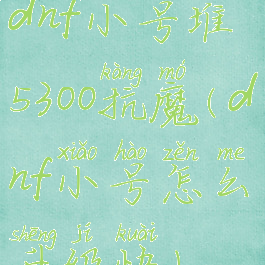 dnf小号堆
kàng mó
5300抗魔(d
xiǎo hào zěn me
nf小号怎么
shēng jí kuài
升级快)